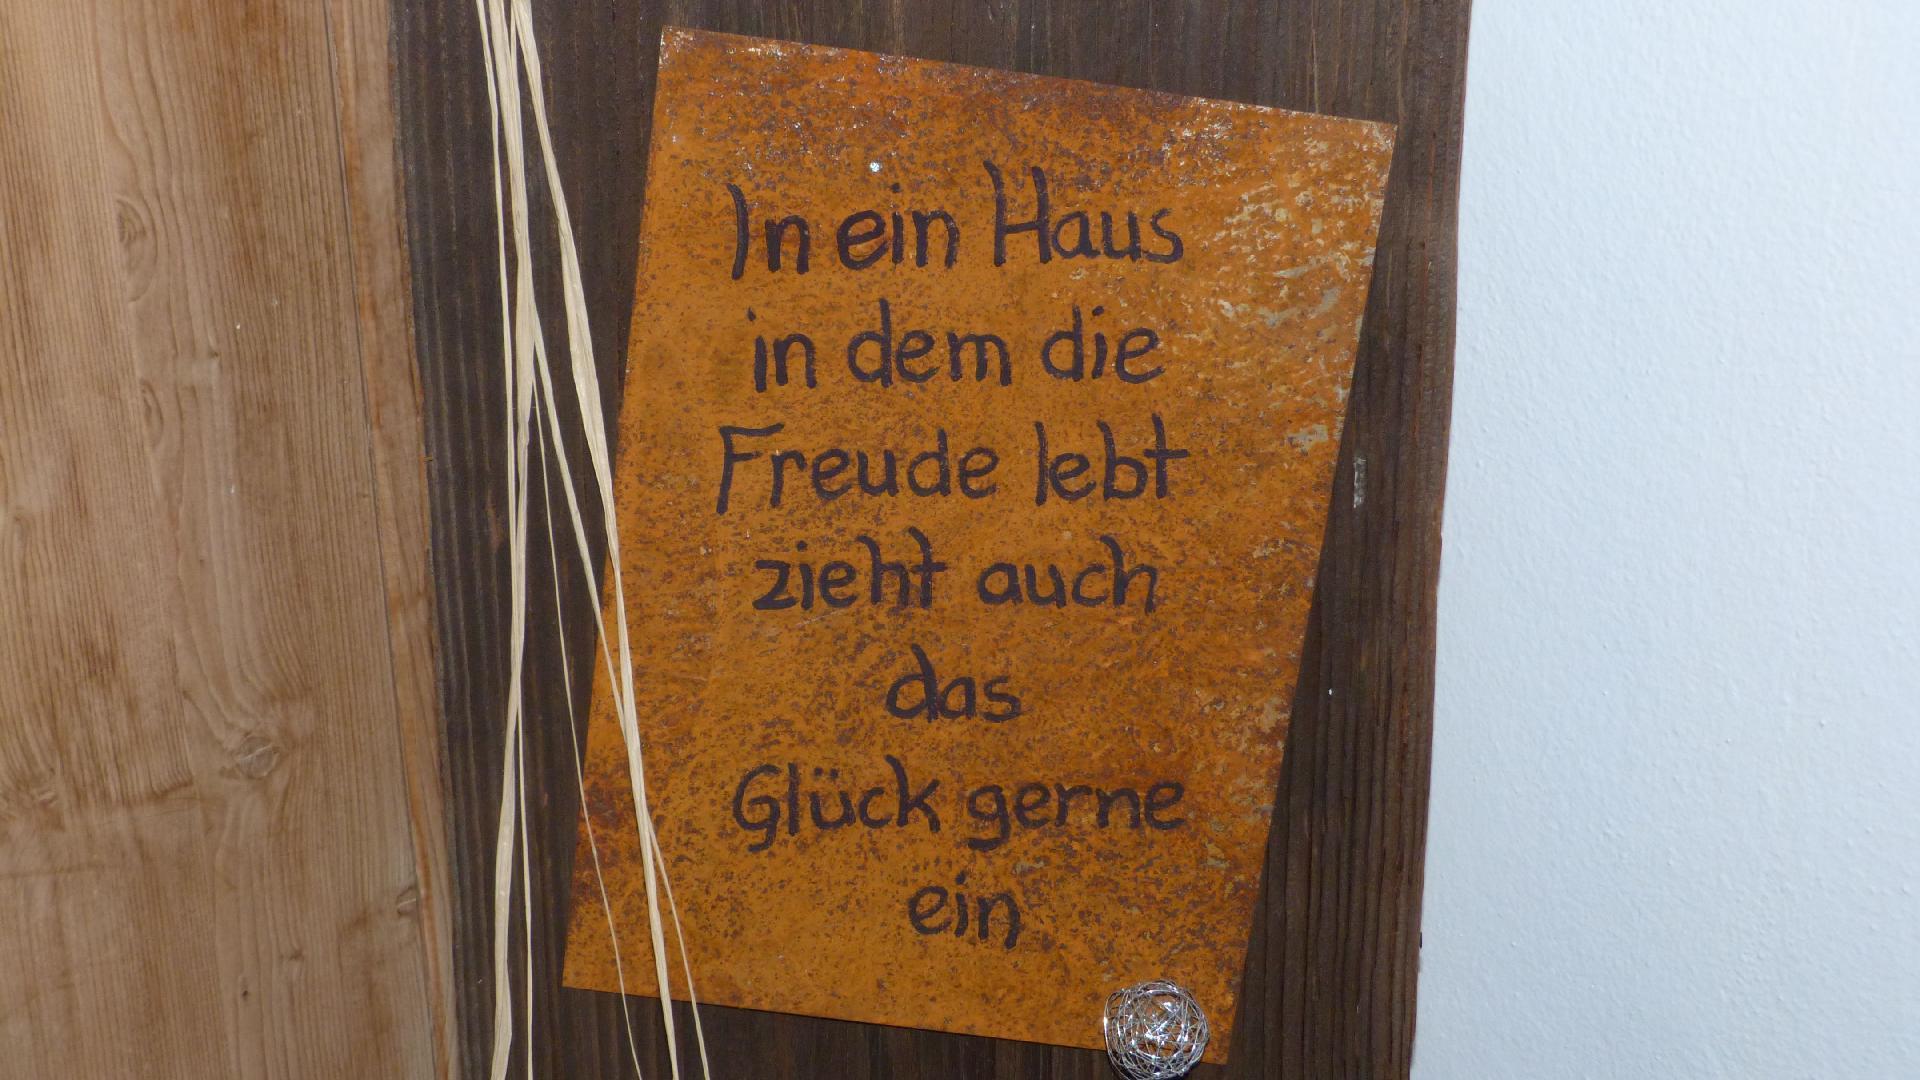 In ein Haus
in dem die
Freude lebt
zieht auch
das
Glück gerne
ein